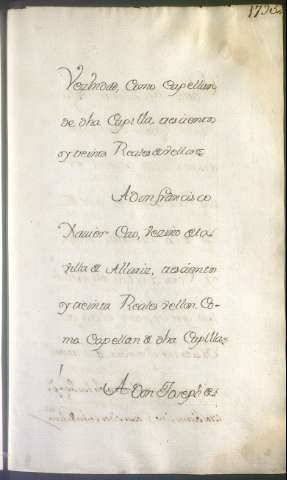 Como Capellan,
de dha Capilla, trescientos
y treinta Reales de vellon;
A Don Francisco
Xavier Cao, Vezino de la
villa de Allariz, trescientos
y treinta Reales vellon Co-
mo Capellan de dha Capilla;
A Don Joseph de